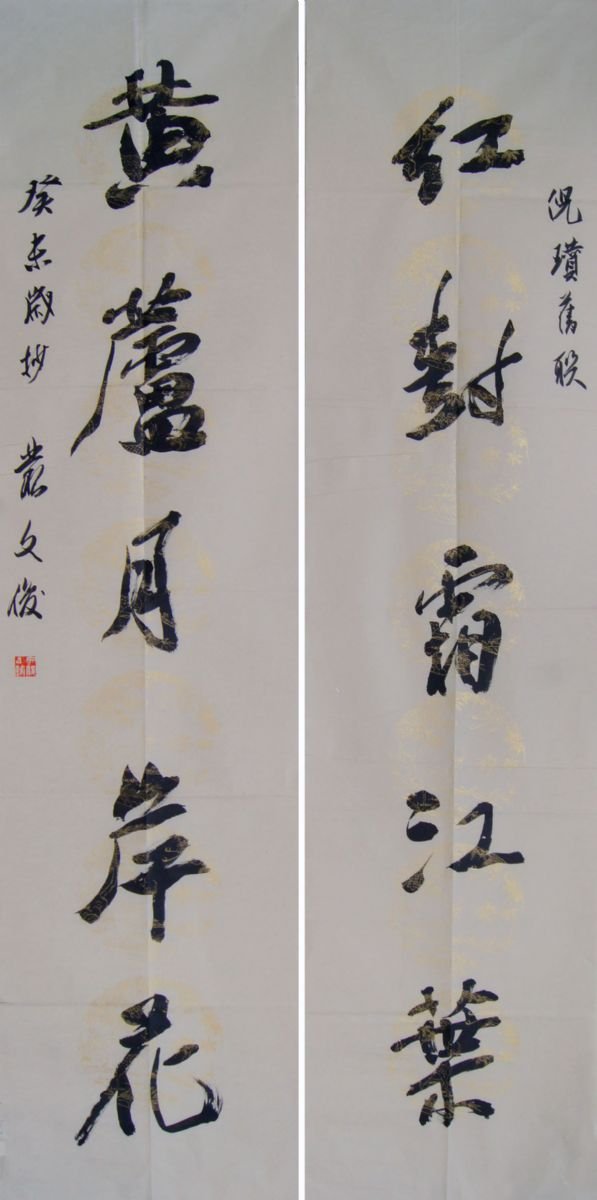 倪瓚舊联
紅尌霜江葉
黄蘆月岸花
癸未歲杪 叢文俊